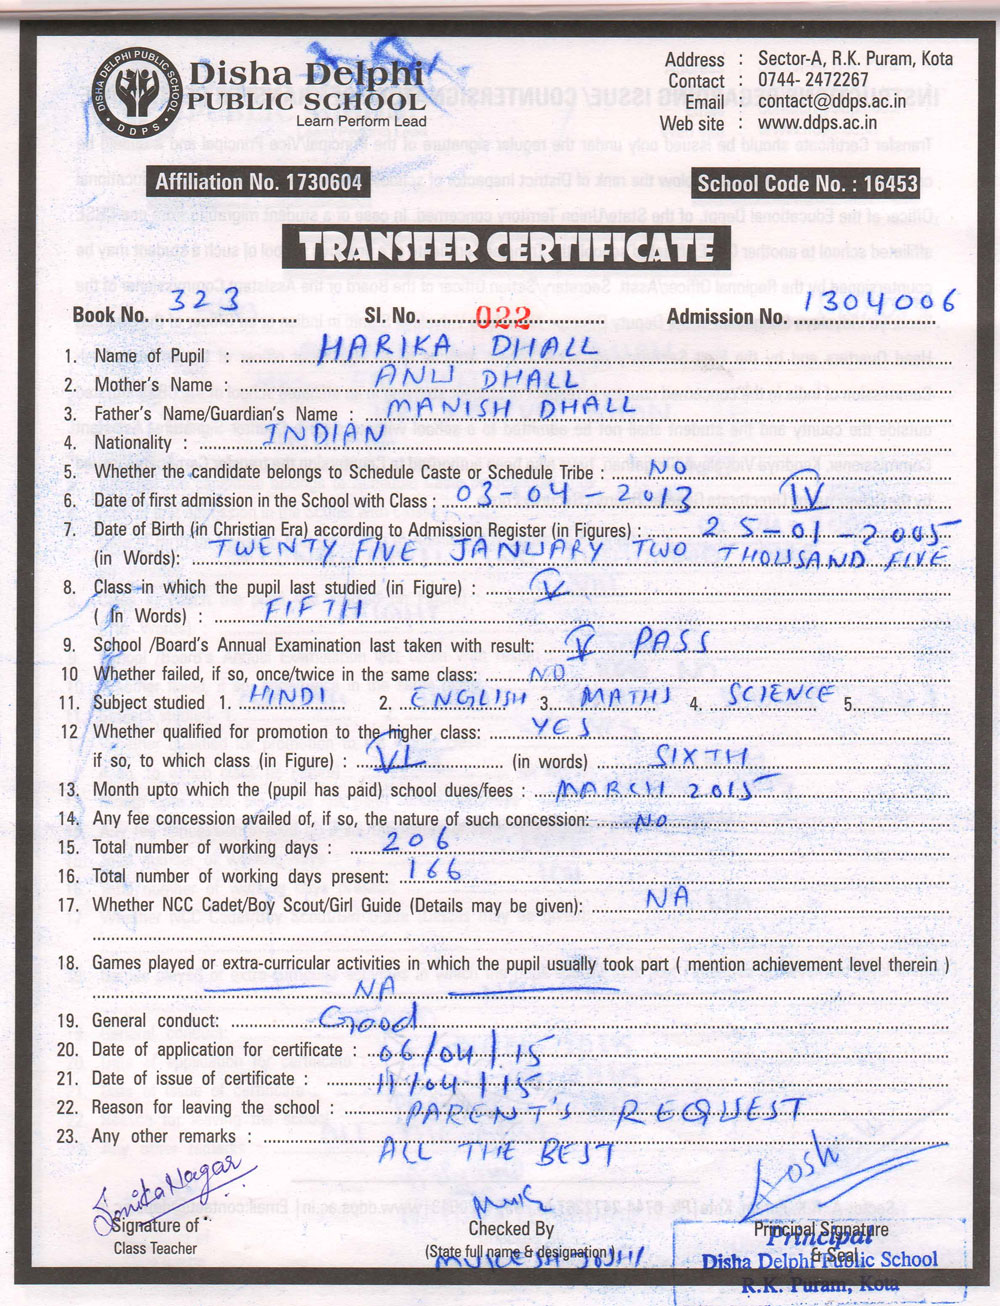 DISHA DELPHI PUBLIC SCHOOL
DDPS
Disha Delphi
PUBLIC SCHOOL
Learn Perform Lead
Address : Sector-A, R.K. Puram, Kota
Contact : 0744- 2472267
Email : contact@ddps.ac.in
Web site : www.ddps.ac.in
Affiliation No. 1730604
School Code No. : 16453
TRANSFER CERTIFICATE
Book No. 323 Sl. No. 022 Admission No. 1304006
1. Name of Pupil : HARIKA DHALL
2. Mother's Name : ANU DHALL
3. Father's Name/Guardian's Name : MANISH DHALL
4. Nationality : INDIAN
5. Whether the candidate belongs to Schedule Caste or Schedule Tribe : NO
6. Date of first admission in the School with Class : 03-04-2013 IV
7. Date of Birth (in Christian Era) according to Admission Register (in Figures) : 25-01-2005
(in Words): TWENTY FIVE JANUARY TWO THOUSAND FIVE
8. Class in which the pupil last studied (in Figure) : V
( In Words) : FIFTH
9. School /Board's Annual Examination last taken with result: V PASS
10 Whether failed, if so, once/twice in the same class: NO
11. Subject studied 1. HINDI 2. ENGLISH 3. MATHS 4. SCIENCE 5.
12 Whether qualified for promotion to the higher class: YES
if so, to which class (in Figure) : VI (in words) SIXTH
13. Month upto which the (pupil has paid) school dues/fees : MARCH 2015
14. Any fee concession availed of, if so, the nature of such concession: NO
15. Total number of working days : 206
16. Total number of working days present: 166
17. Whether NCC Cadet/Boy Scout/Girl Guide (Details may be given): NA
18. Games played or extra-curricular activities in which the pupil usually took part ( mention achievement level therein )
NA
19. General conduct: Good
20. Date of application for certificate : 06/04/15
21. Date of issue of certificate : 11/04/15
22. Reason for leaving the school : PARENT'S REQUEST
23. Any other remarks : ALL THE BEST
Nagar
Signature of
Class Teacher
Checked By
(State full name & designation)
MUKESH JOSHI
Principal Signature
& Seal
Principal
Disha Delphi Public School
R.K. Puram, Kota